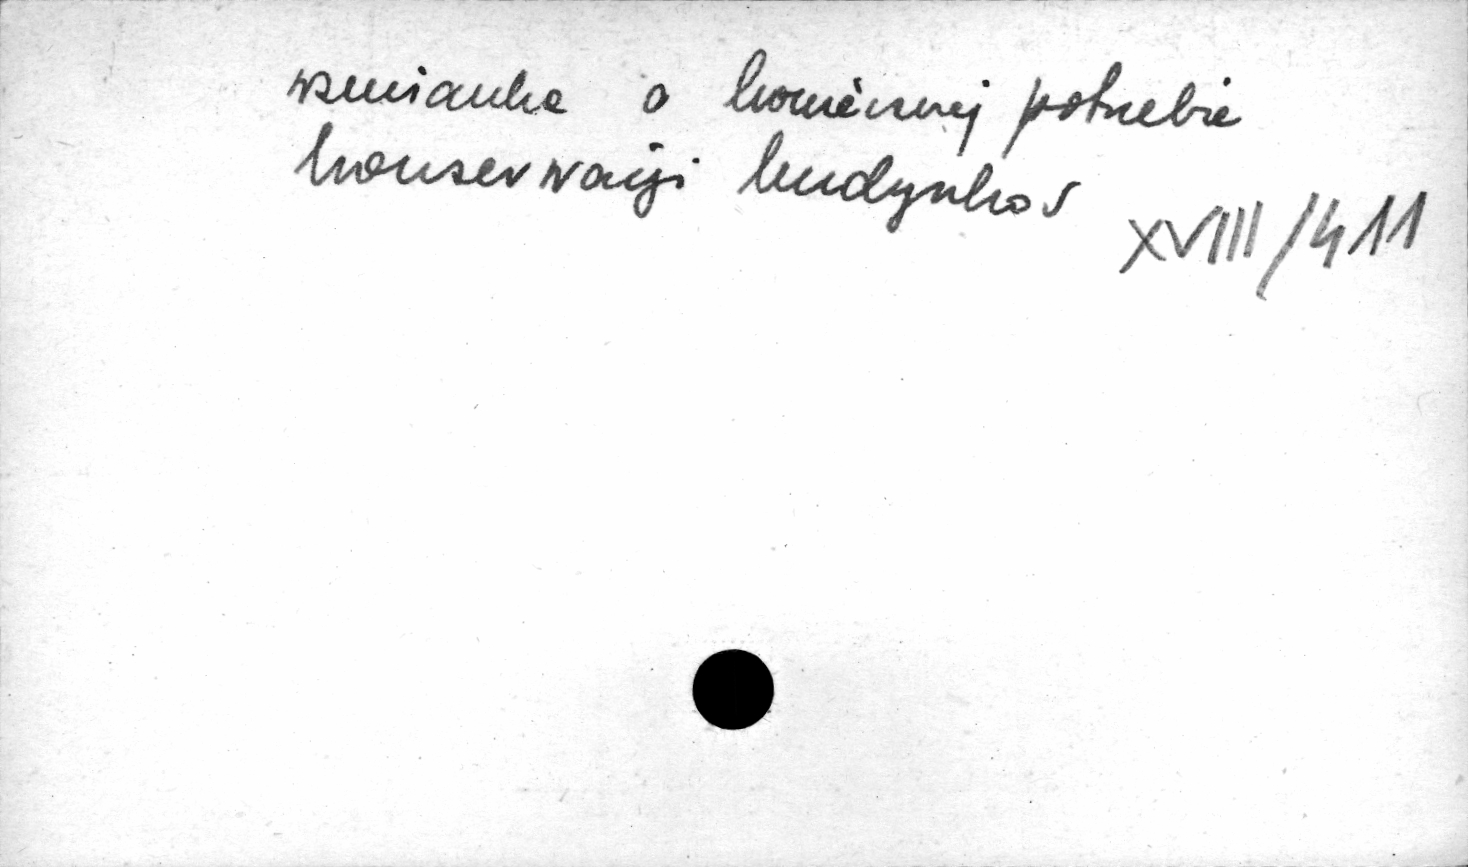 wzmianka o koniecznej potrzebie
konserwacji budynków
XVIII/411